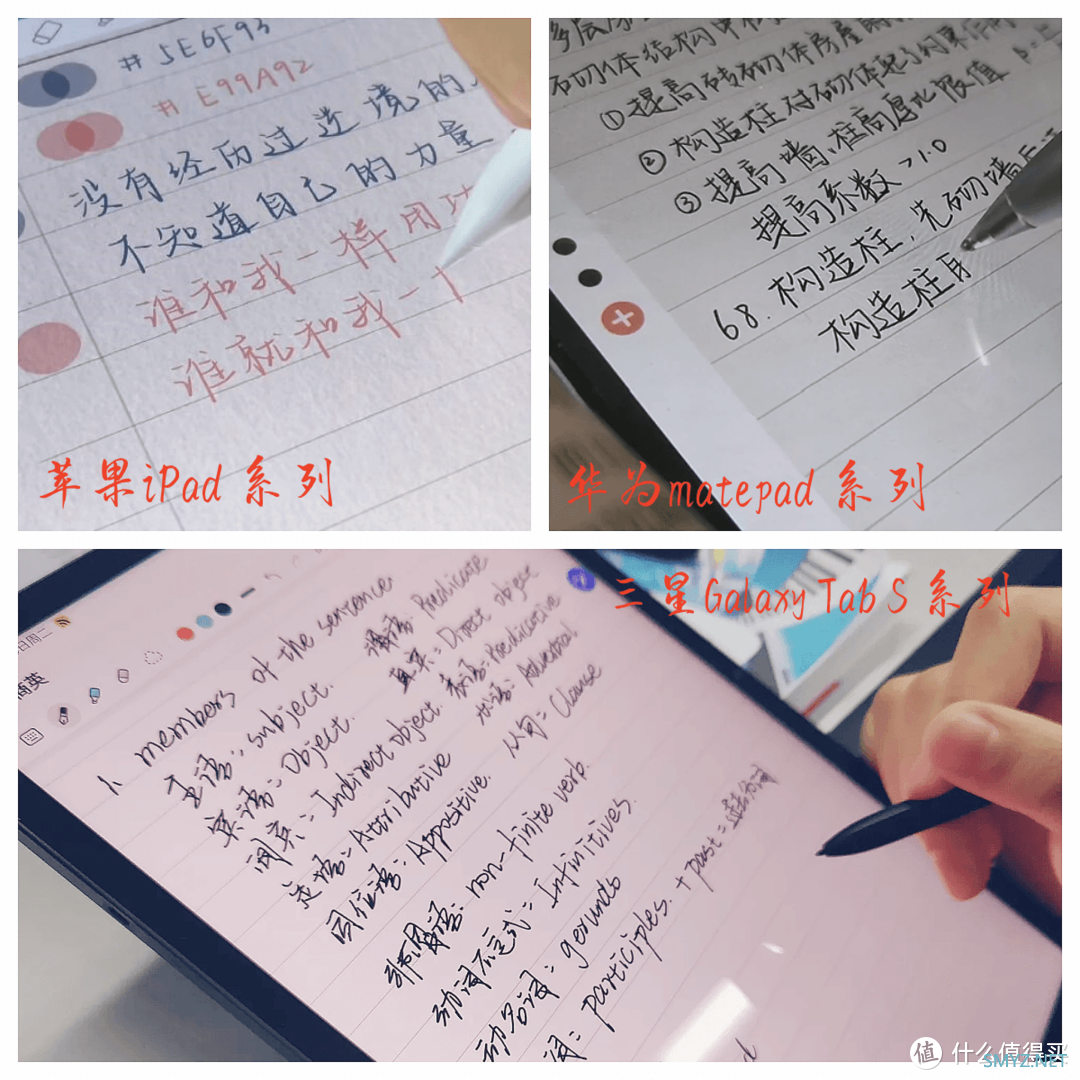 # 5E6F93
# E99A92
没有经历过逆境的人
不知道自己的力量
谁和我一样用功
谁就和我一
苹果iPad系列
砖砌体结构中
①提高砖砌体房屋
②构造柱对砌体起了约束作用
③提高墙、柱高厚比限值
提高系数>1.0
68.构造柱,先砌墙后
构造柱与
华为matepad系列
三星Galaxy Tab S系列
日周二
商英
1. members of the sentence
主语: subject.
宾语: Object.
间宾: Indirect object.
定语: Attributive
同位语: Appositive.
谓语: Predicate
直宾: Direct object
表语: Predicative
状语: Adverbial
从句: Clause
非谓语: non-finite verb.
动词不定式: Infinitives.
动名词: gerunds
词: participles. + past = 过去分词
值 什么值得买
SMYZ.NET